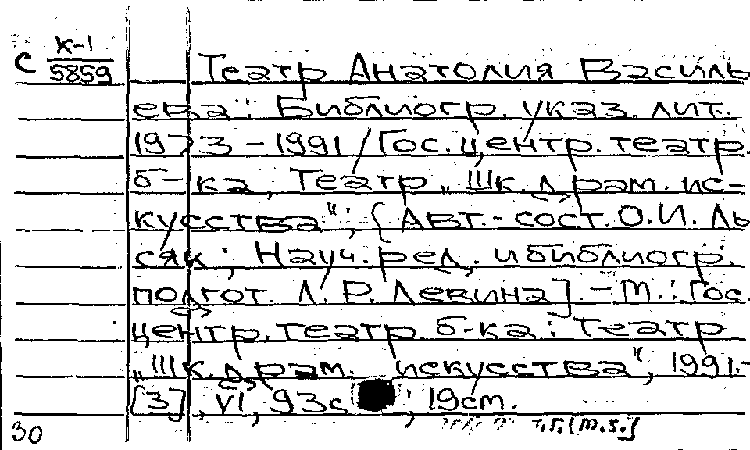 С К-1
5859
Театр Анатолия Василь
ева: Библиогр. указ. лит.
1973-1991 / Гос. центр. театр.
б-ка, Театр "Шк. драм. ис-
кусства"; [Авт.-сост. О.И. Ль
сяк; Науч. ред. и библиогр.
подгот. Л. Р. Левина]. - М.: Гос.
центр. театр. б-ка: Театр
"Шк. драм. искусства", 1991.-
[3], VI, 93с ; 19см.
30